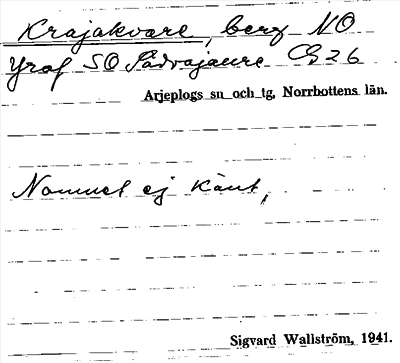 Krajakvare, berg NO
Yraf SO Sädvajaure Cg 26
Arjeplogs sn och tg, Norrbottens län.
Namnet ej känt,
Sigvard Wallström, 1941.